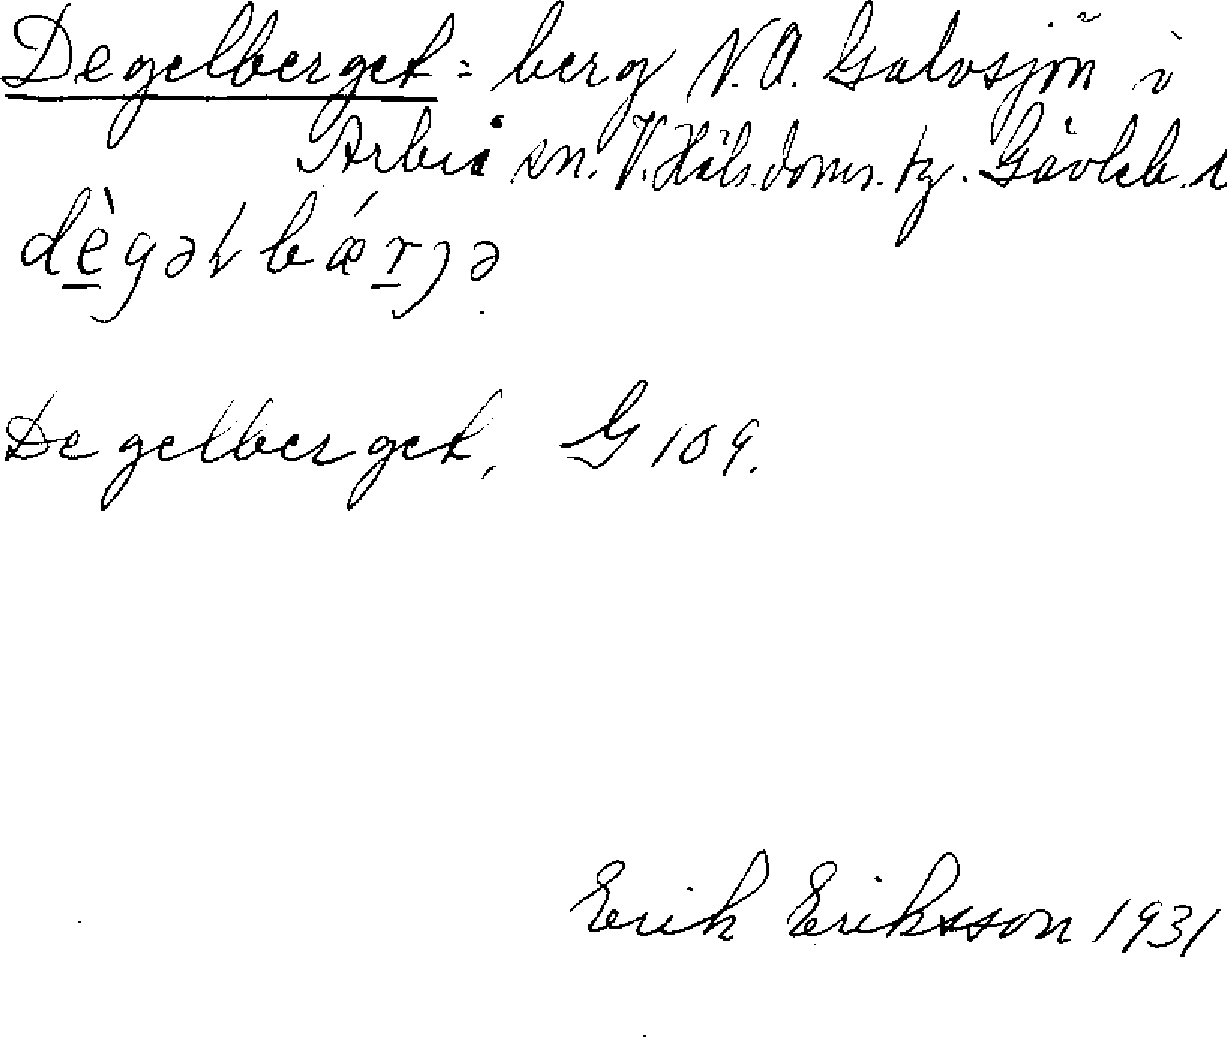 Degelberget = berg N.O. Galvsjön i
Arbrå sn. V. Häls. doms. tg. Gävleb. l
dègəɫbǽrjə
Degelberget, G 109.
Erik Eriksson 1931